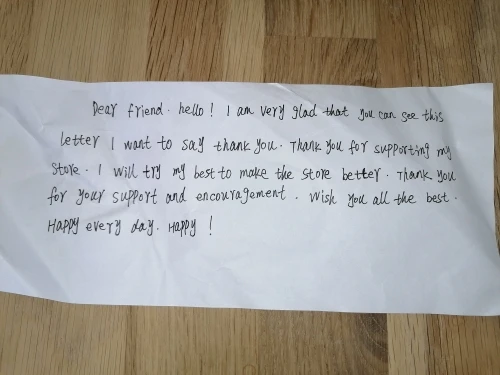 Dear friend. hello! I am very glad that you can see this
letter I want to say thank you. Thank you for supporting my
store. I will try my best to make the store better. Thank you
for your support and encouragement. Wish you all the best.
Happy every day. Happy!